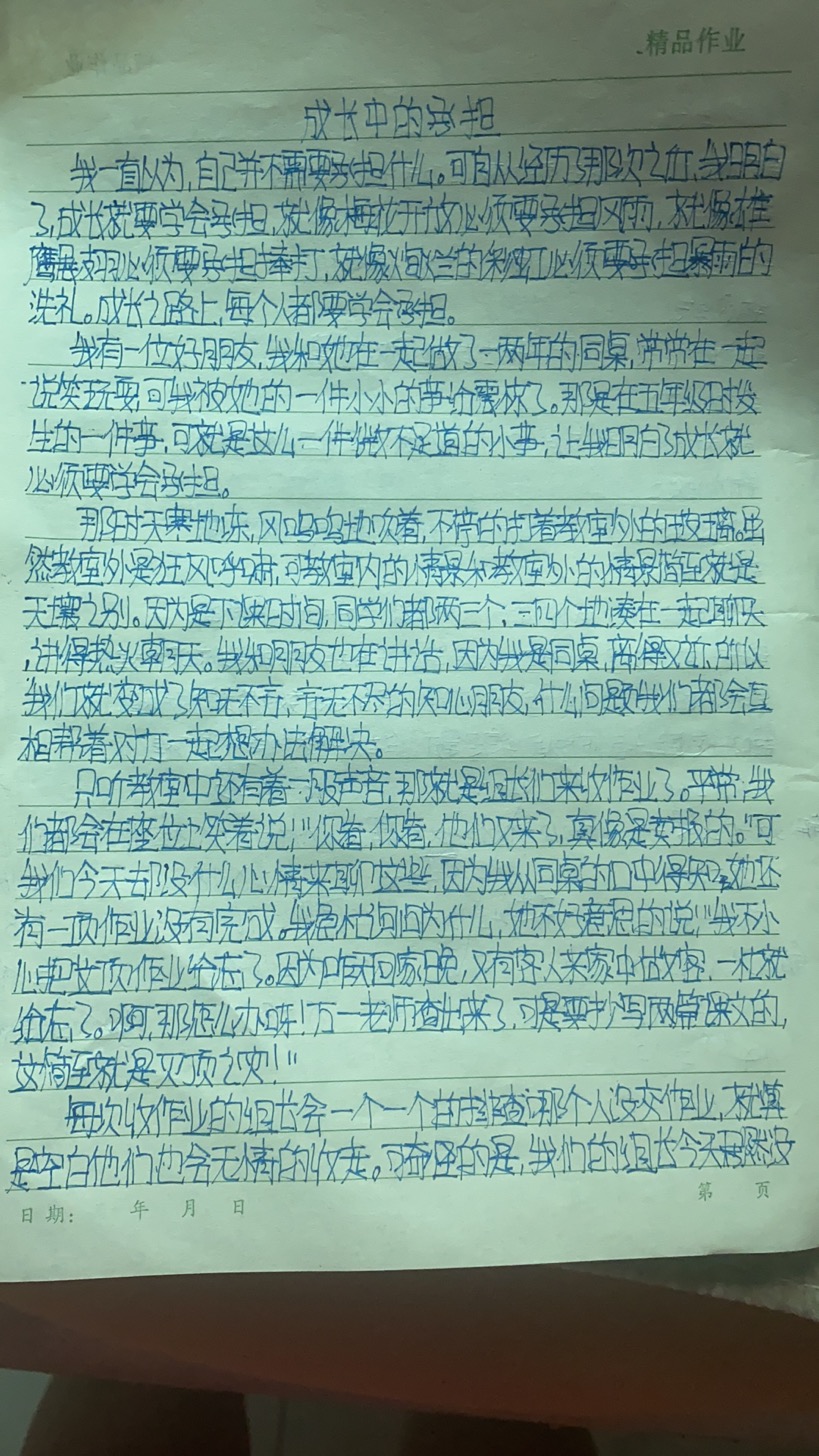 精品作业
成长中的承担
我一直以为,自己并不需要承担什么。可自从经历了那次之后,我明白
了,成长就要学会承担,就像梅花开放必须要承担风雨,就像雄
鹰展翅必须要承担捶打,就像灿烂的彩虹必须要承担暴雨的
洗礼。成长之路上,每个人都要学会承担。
我有一位好朋友,我和她在一起做了一两年的同桌,常常在一起
说笑玩耍,可我被她的一件小小的事给震撼了。那是在五年级时发
生的一件事,可就是这么一件微不足道的小事,让我明白了成长就
必须要学会承担。
那时天寒地冻,风呜呜地吹着,不停的打着教室外的玻璃。虽
然教室外是狂风呼啸,可教室内的情景和教室外的情景简至就是
天壤之别。因为是下课时间,同学们都两三个、三四个地凑在一起聊天
,讲得热火朝天。我和朋友也在讲话,因为我是同桌,离得又近,所以
我们就变成了知无不言,言无不尽的知心朋友,什么问题我们都会互
相帮着对方一起想办法解决。
只听教室中还有着一股声音,那就是组长们来收作业了。平常,我
们都会在座位上笑着说:"你看,你看,他们又来了,真像是卖报的。"可
我们今天却没什么心情来聊这些,因为我从同桌的口中得知她还
有一项作业没有完成。我急忙询问为什么,她不好意思的说:"我不小
心把这项作业给忘了。因为昨天回家晚,又有客人来家中做客,一忙就
给忘了。啊,那怎么办哚!万一老师查出来了,可是要抄写两篇课文的,
这简至就是灭顶之灾!"
每次收作业的组长会一个一个的排查哪个人没交作业,就算
是空白他们也会无情的收走。可奇怪的是,我们的组长今天居然没
日期: 年 月 日
第 页